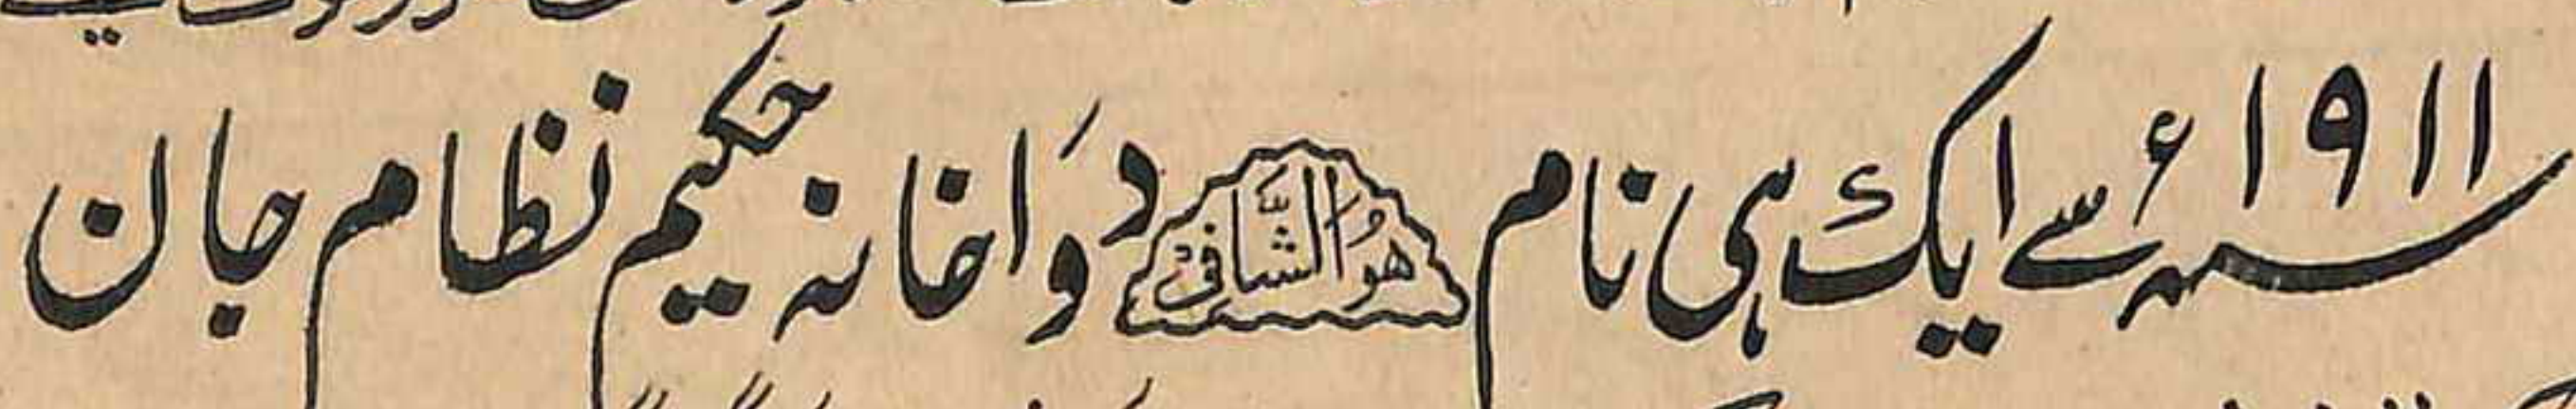 سنہ ۱۹۱۱ء سے ایک ہی نام هُوَ الشَّافِیْ دَواخانہ حکیم نظام جان